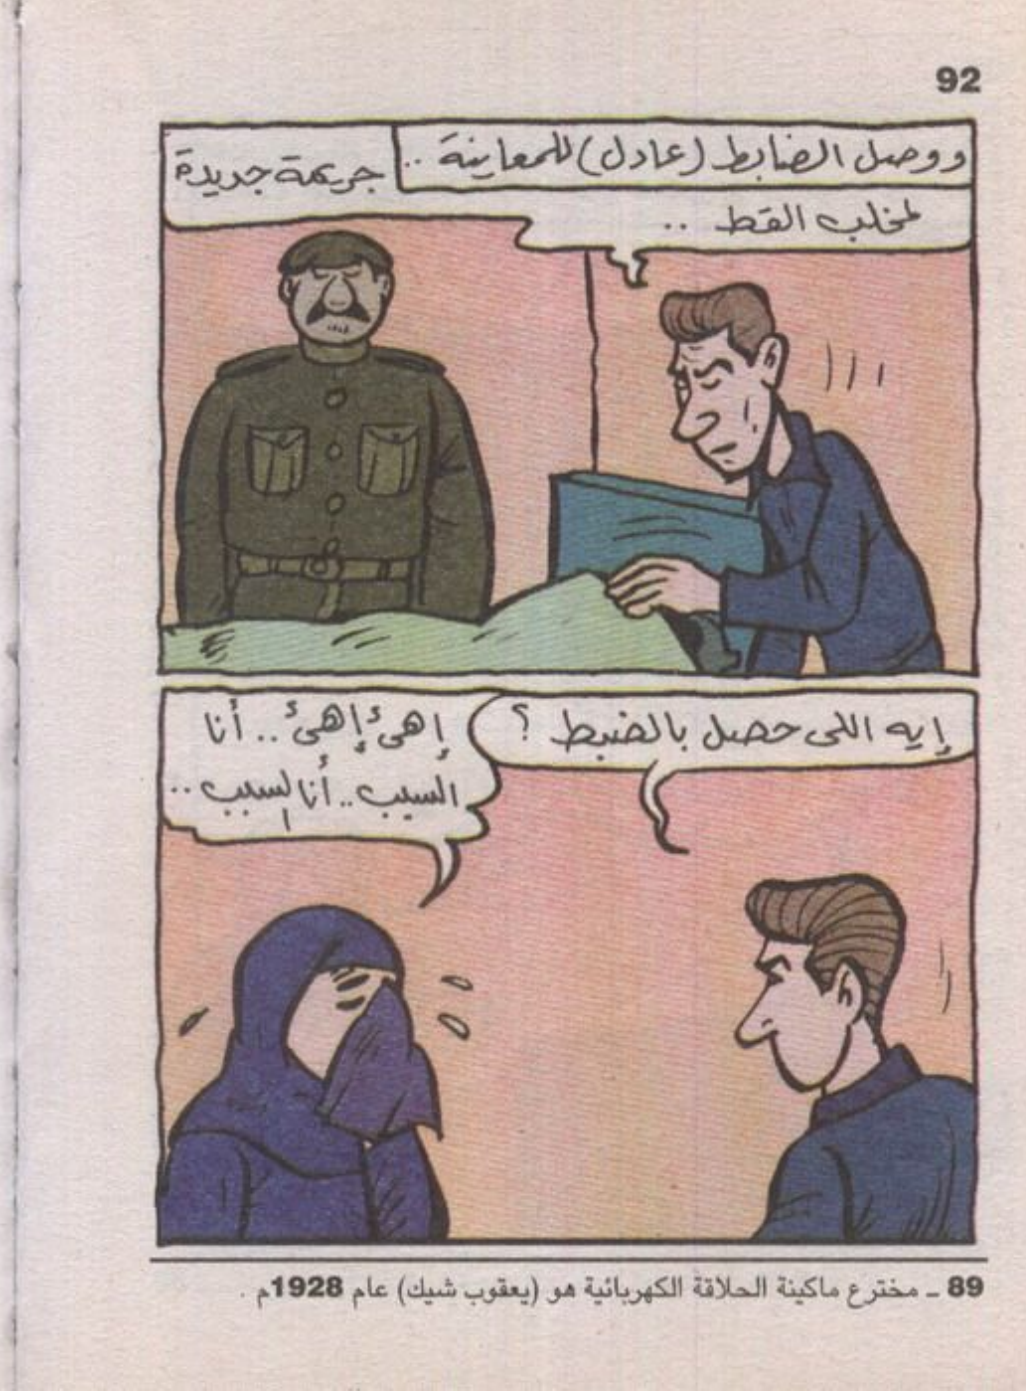 92
ووصل الضابط (عادل) للمعاينة ..
جريمة جديدة
لمخلب القط ..
إيه اللى حصل بالضبط ؟
إهئ إهئ .. أنا
السبب .. أنا السبب ..
89 ـ مخترع ماكينة الحلاقة الكهربائية هو (يعقوب شيك) عام 1928م .